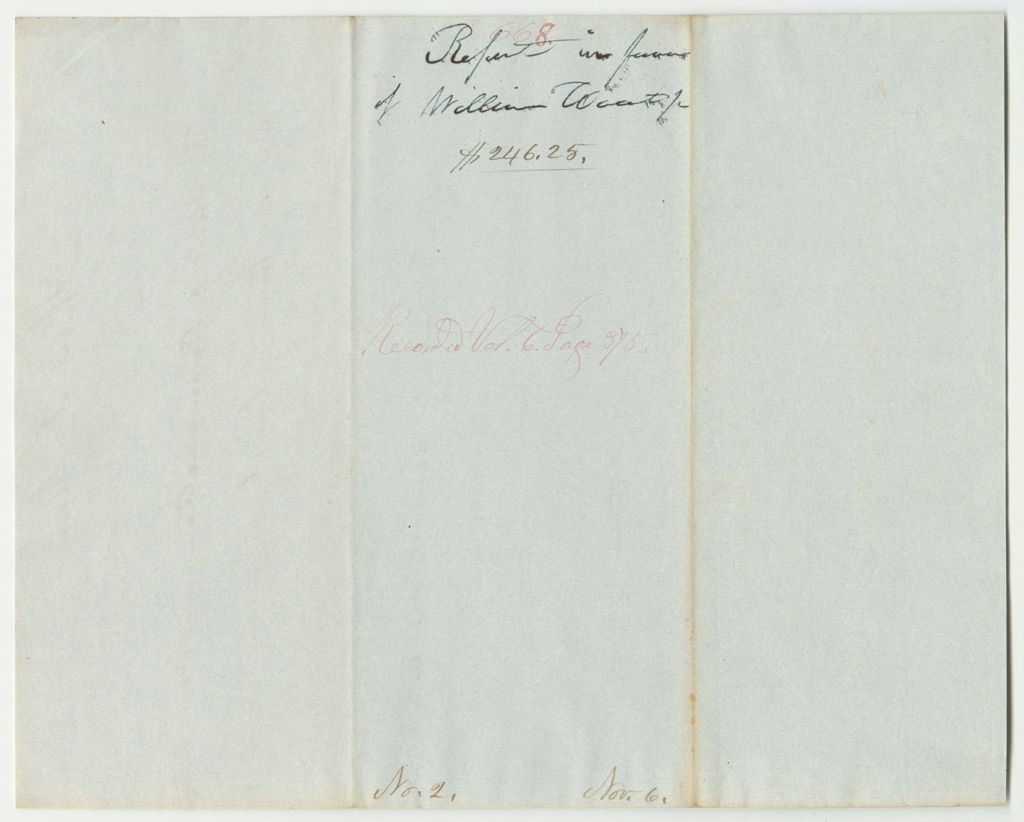 668
Report in favor
of William
$246.25.
Recorded Vol. 6. Page 375.
No. 2. Nov. 6.